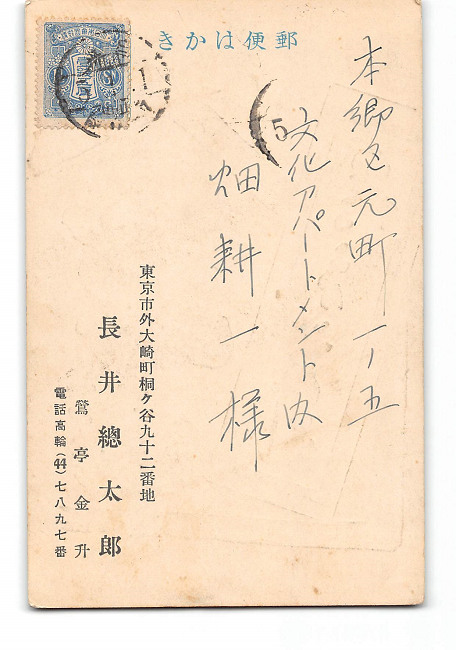 郵便はかき
本郷区元町一ノ五
文化アパートメント内
畑耕一様
東京市外大崎町桐ケ谷九十二番地
長井總太郎
鶯亭金升
電話高輪(44)七八九七番